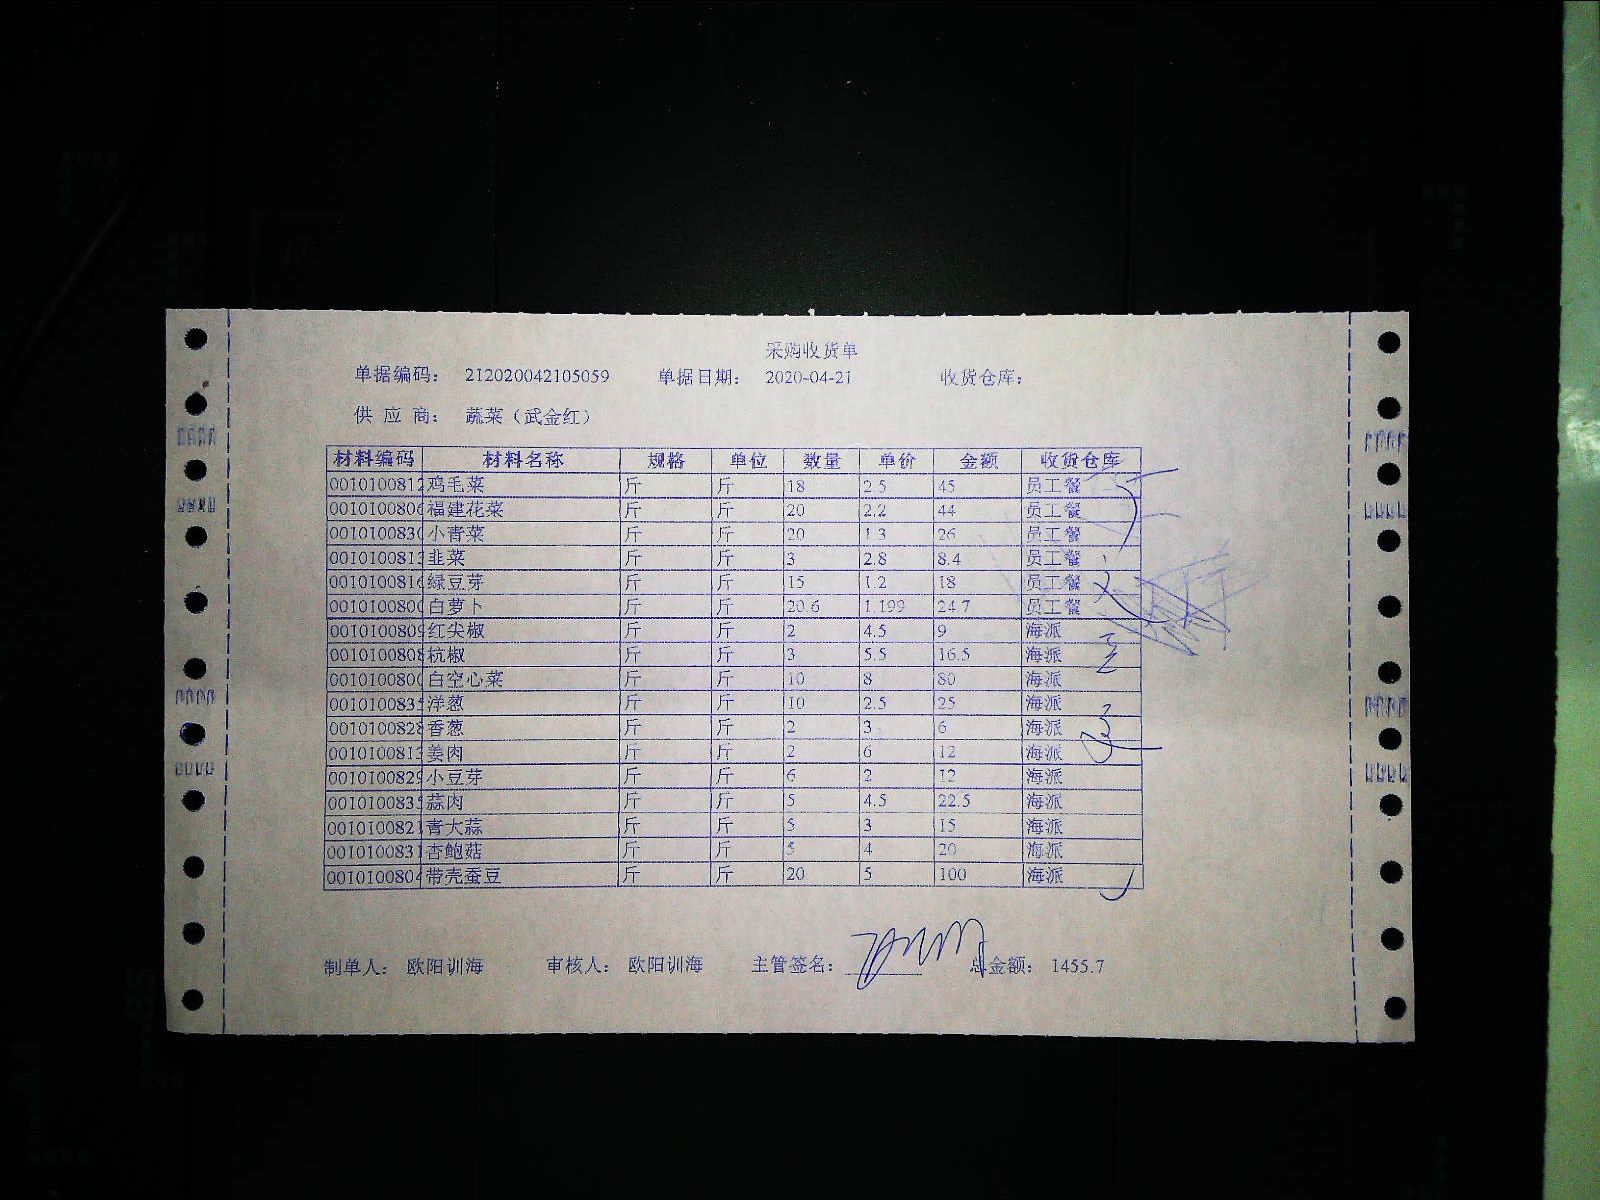 采购收货单
单据编码： 212020042105059 单据日期： 2020-04-21 收货仓库：
供 应 商： 蔬菜（武金红）
材料编码 材料名称 规格 单位 数量 单价 金额 收货仓库
001010081 鸡毛菜 斤 斤 18 2.5 45 员工餐
001010080 福建花菜 斤 斤 20 2.2 44 员工餐
001010083 小青菜 斤 斤 20 1.3 26 员工餐
001010081 韭菜 斤 斤 3 2.8 8.4 员工餐
001010081 绿豆芽 斤 斤 15 1.2 18 员工餐
001010080 白萝卜 斤 斤 20.6 1.199 24.7 员工餐
001010080 红尖椒 斤 斤 2 4.5 9 海派
001010080 杭椒 斤 斤 3 5.5 16.5 海派
001010080 白空心菜 斤 斤 10 8 80 海派
001010083 洋葱 斤 斤 10 2.5 25 海派
001010082 香葱 斤 斤 2 3 6 海派
001010081 姜肉 斤 斤 2 6 12 海派
001010082 小豆芽 斤 斤 6 2 12 海派
001010083 蒜肉 斤 斤 5 4.5 22.5 海派
001010082 青大蒜 斤 斤 5 3 15 海派
001010083 杏鲍菇 斤 斤 5 4 20 海派
001010080 带壳蚕豆 斤 斤 20 5 100 海派
制单人： 欧阳训海 审核人： 欧阳训海 主管签名： 总金额： 1455.7